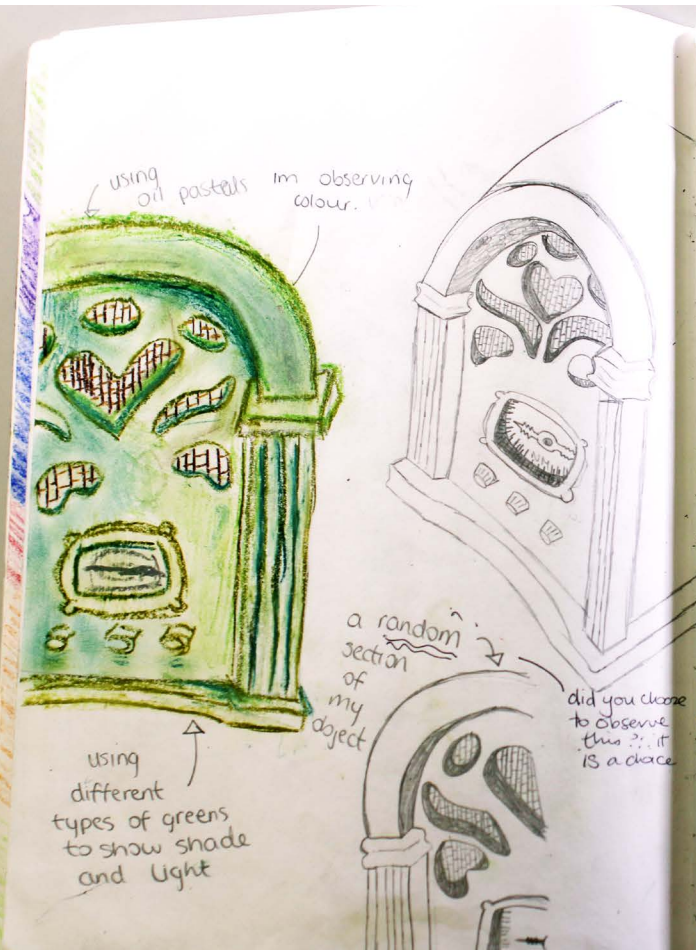 using
oil pastels
im observing
colour.
a random
section
of
my
object
did you choose
to observe
this?? it
IS a choice
using
different
types of greens
to show shade
and light